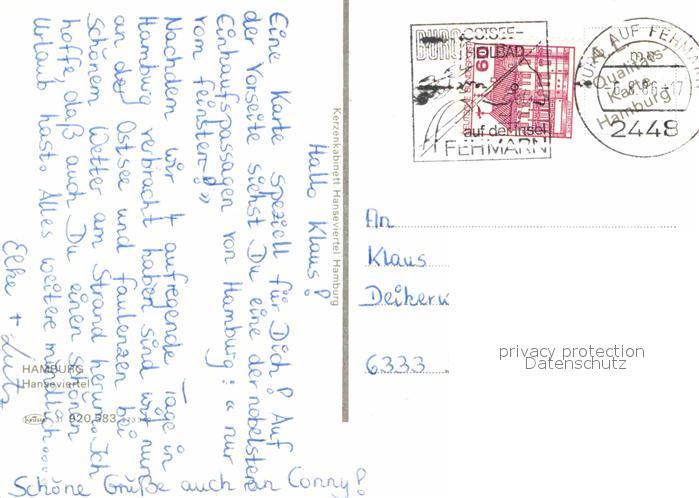 Hallo Klaus!
Eine Karte speziell für Dich! Auf
der Vorseite siehst Du eine der nobelsten
Einkaufspassagen von Hamburg: "nur
vom feinsten!"
Nachdem wir 4 aufregende Tage in
Hamburg verbracht haben sind wir nun
an der Ostsee und faulenzen bei
Schönem Wetter am Strand herum. Ich
hoffe, daß auch Du einen schönen
Urlaub hast. Alles weitere mündlich...
Elke + Lutz
Schöne Grüße auch an Conny!
HAMBURG
Hanseviertel
920.583
Kerzenkabinett Hanseviertel Hamburg
BURG OSTSEE-
HEILBAD
auf der Insel
FEHMARN
60
BURG AUF FEHMARN
2448
Qualitäts
Karte
Hamburg
An
Klaus
Deikern
6333
privacy protection
Datenschutz